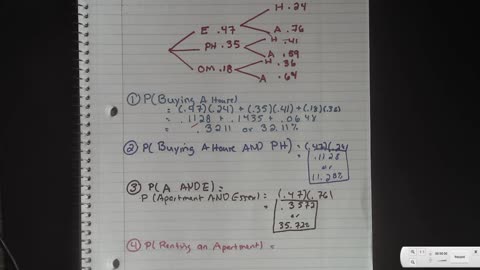 H .24
E .47
A .76
H .41
PH .35
A .59
H .36
OM .18
A .64
① P(Buying A House)
= (.47)(.24) + (.35)(.41) + (.18)(.36)
= .1128 + .1435 + .0648
= .3211 or 32.11%
② P(Buying A House AND PH) = (.47)(.24)
.1128
or
11.28%
③ P(A AND E) =
P(Apartment AND Essex) = (.47)(.76)
= .3572
or
35.72%
④ P(Renting an Apartment) =